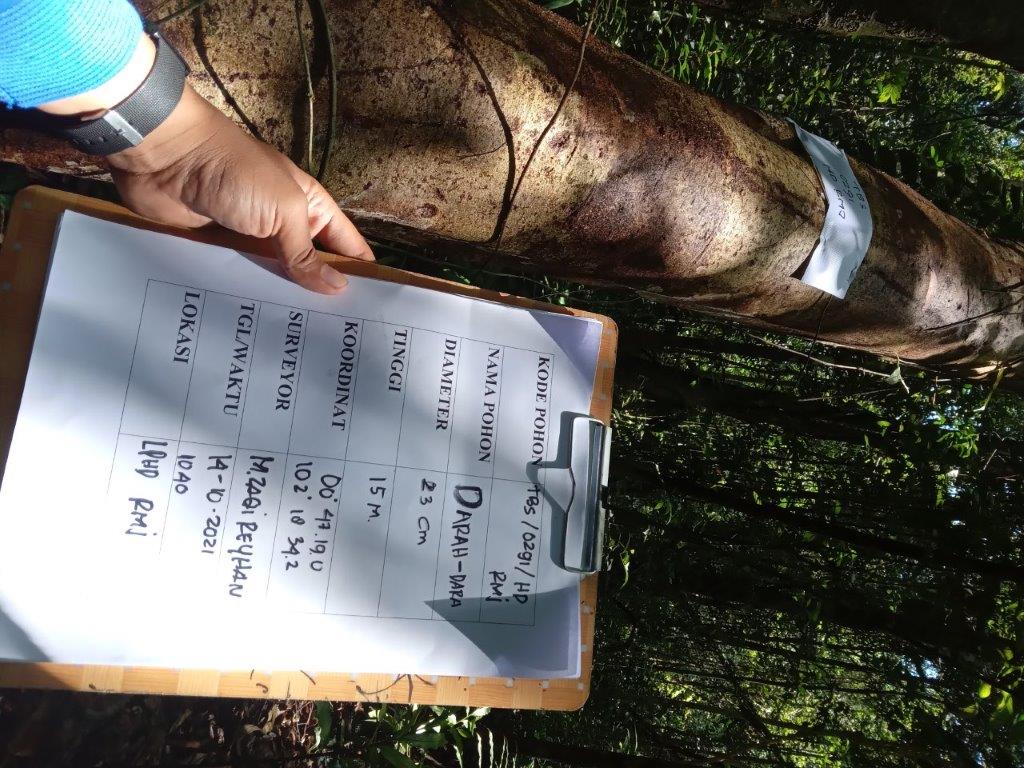 KODE POHON TBS/0291/HD RMJ
NAMA POHON DARAH-DARA
DIAMETER 23 cm
TINGGI 15 M.
KOORDINAT 00° 47.19,0
102° 10 34.2
SURVEYOR M.ZAQI REYHAN
TGL/WAKTU 14-10-2021
1040
LOKASI LPHD RMJ